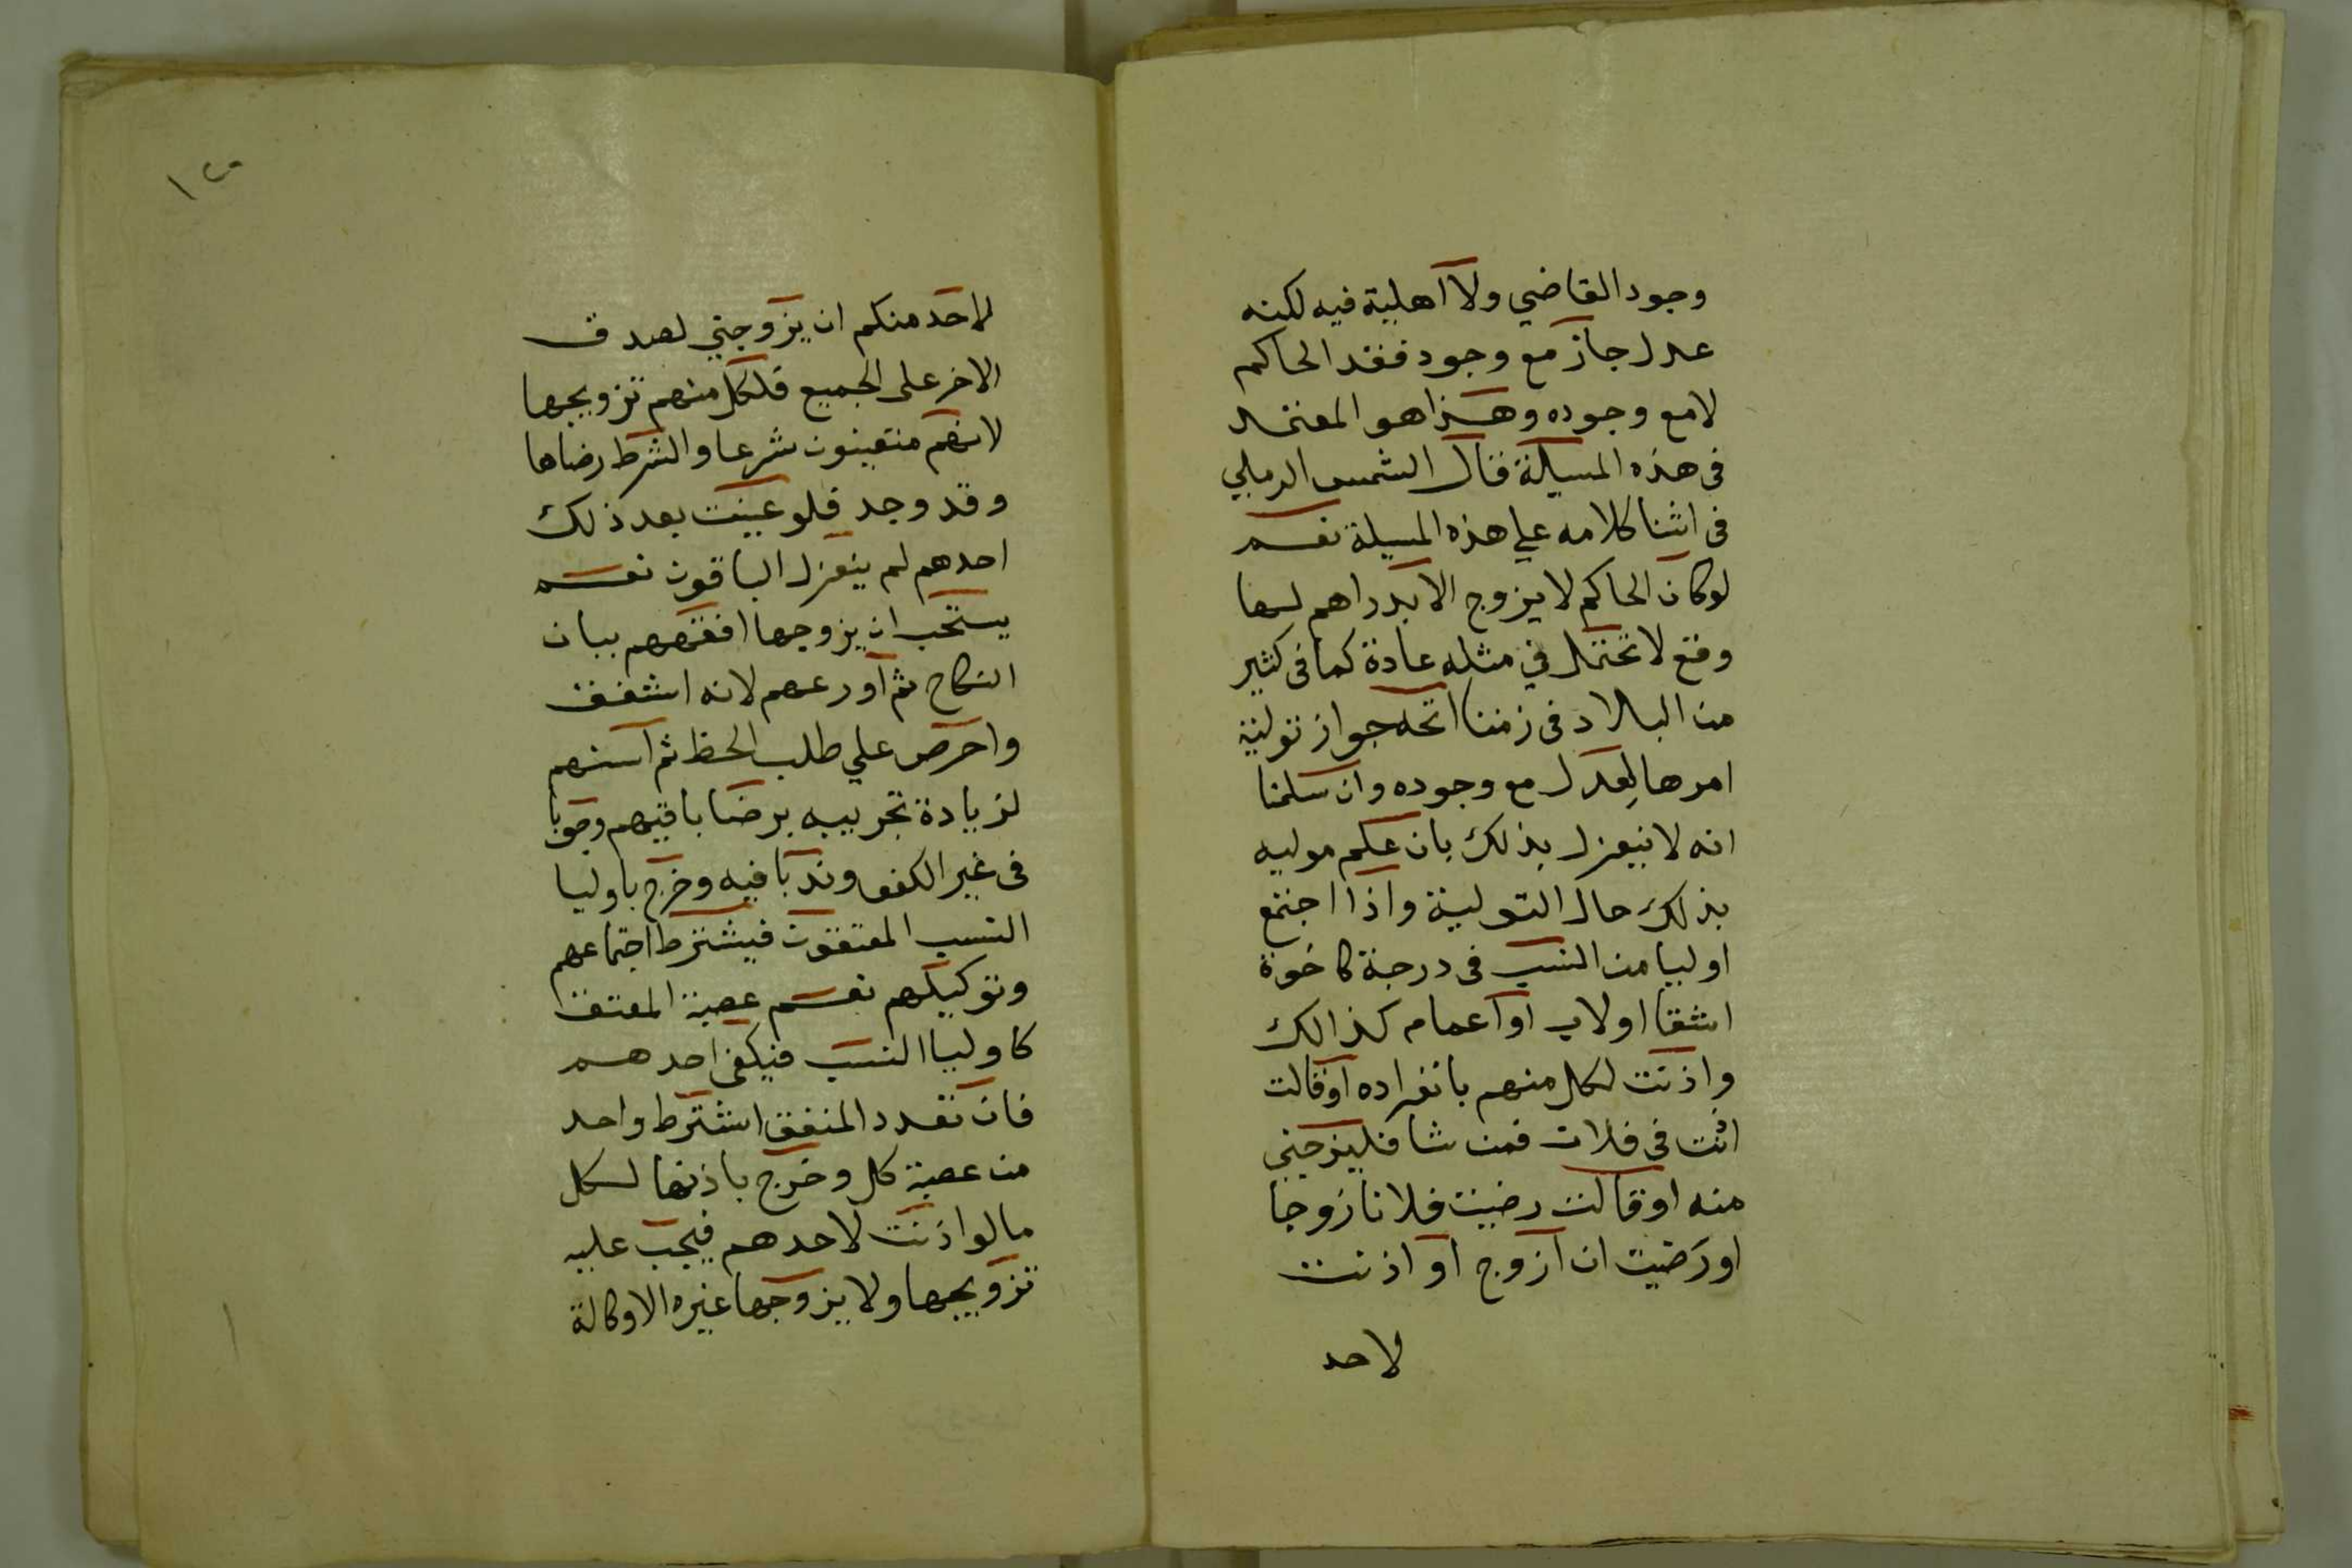 وجود القاضي ولا اهلية فيه لكنه
عدل جاز مع وجود فقد الحاكم
لا مع وجوده وهذا هو المعتمد
في هذه المسيلة قال الشمس الرملي
في اثنا كلامه علي هذه المسيلة نعم
لو كان الحاكم لا يزوج الا بدراهم لها
وقع لا تحتمل في مثله عادة كما في كثير
من البلاد في زمننا اتجه جواز تولية
امرها لعدل مع وجوده وان سلمنا
انه لا ينعزل بذلك بان علم موليه
بذلك حال التولية واذا اجتمع
اوليا من النسب في درجة كاخوة
اشقا او لاب او اعمام كذالك
واذنت لكل منهم بانفراده او قالت
اذنت في فلان فمن شا فليزوجني
منه او قالت رضيت فلانا زوجا
او رضيت ان ازوج او اذنت
لاحد
١٢٥
لاحد منكم ان يزوجني لصدق
الاخر على الجميع فلكل منهم تزويجها
لانهم متعينون شرعا والشرط رضاها
وقد وجد فلو عينت بعد ذلك
احدهم لم ينعزل الباقون نعم
يستحب ان يزوجها افقههم بباب
النكاح ثم اورعهم لانه اشفق
واحرص علي طلب الحظ ثم اسنهم
لزيادة تجريبه برضا باقيهم وجوبا
في غير الكفو وندبا فيه وخرج باوليا
النسب المعتقون فيشترط اجتماعهم
وتوكيلهم نعم عصبة المعتق
كاوليا النسب فيكفي احدهم
فان تعدد المعتق اشترط واحد
من عصبة كل وخرج باذنها لكل
ما لو اذنت لاحدهم فيجب عليه
تزويجها ولا يزوجها غيره الا وكالة